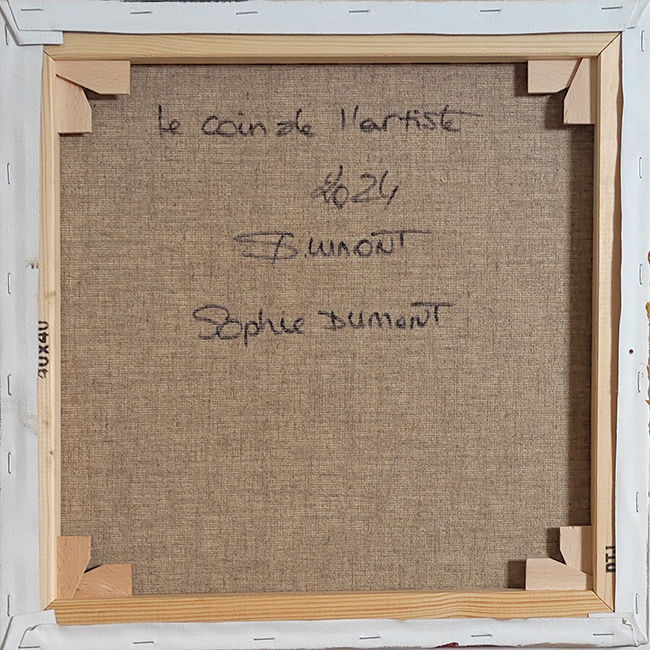 Le coin de l'artiste
2024
DUMONT
Sophie DUMONT
40x40